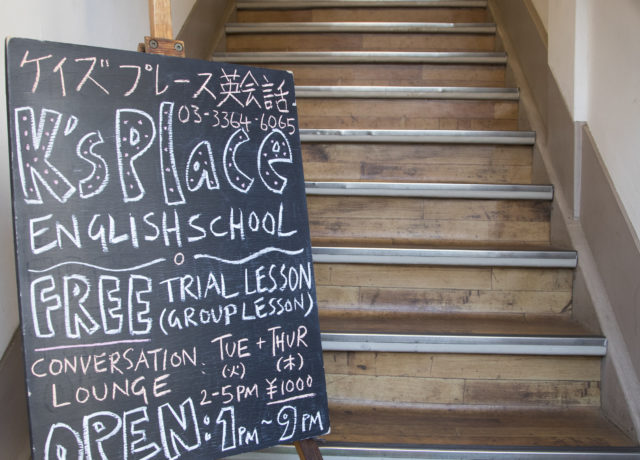 ケイズ プレース 英会話
03-3364-6065
K's Place
ENGLISH SCHOOL
FREE TRIAL LESSON
(GROUP LESSON)
CONVERSATION LOUNGE
TUE + THUR
(火) (木)
2-5PM ¥1000
OPEN: 1PM~9PM